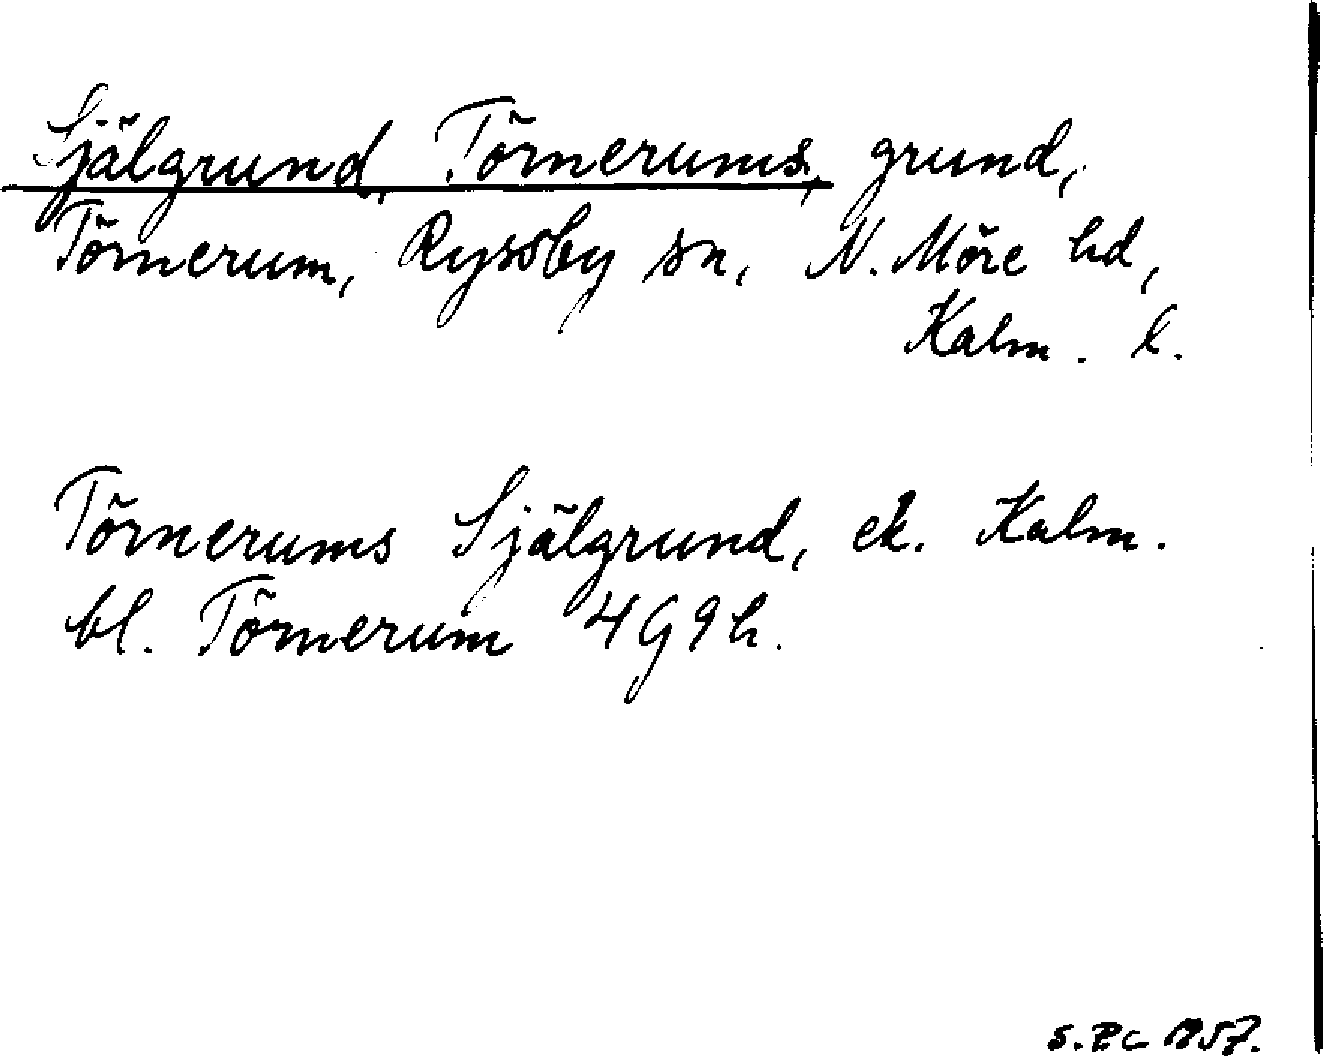 Själgrund, Törnerums, grund,
Törnerum, Ryssby sn, N. Möre hd,
Kalm. l.
Törnerums Själgrund, ek. Kalm.
bl. Törnerum 4G9h.
1957.